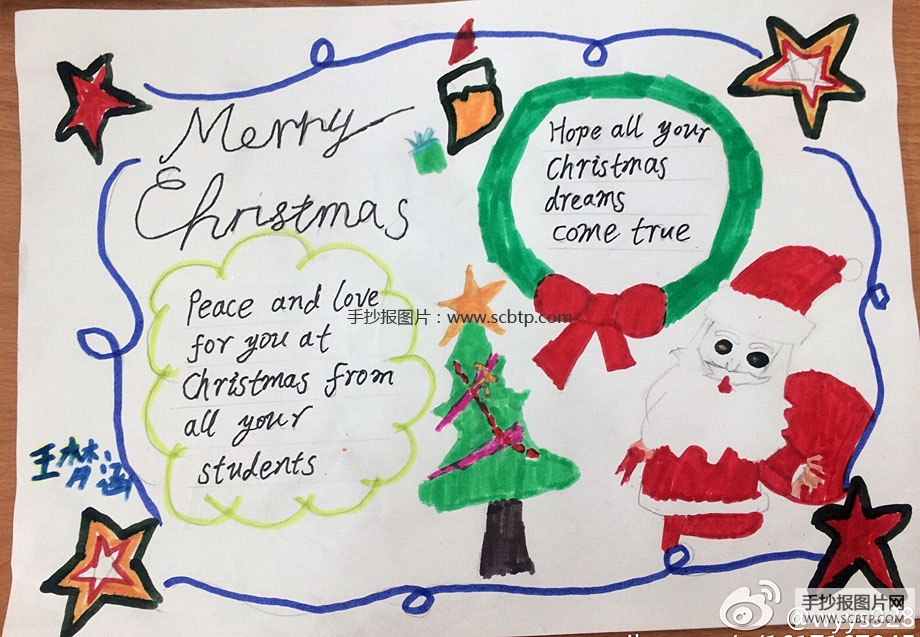 Merry
Christmas
Hope all your
Christmas
dreams
come true
Peace and love
for you at
Christmas from
all your
students
手抄报图片：www.scbtp.com
手抄报图片网
WWW.SCBTP.COM